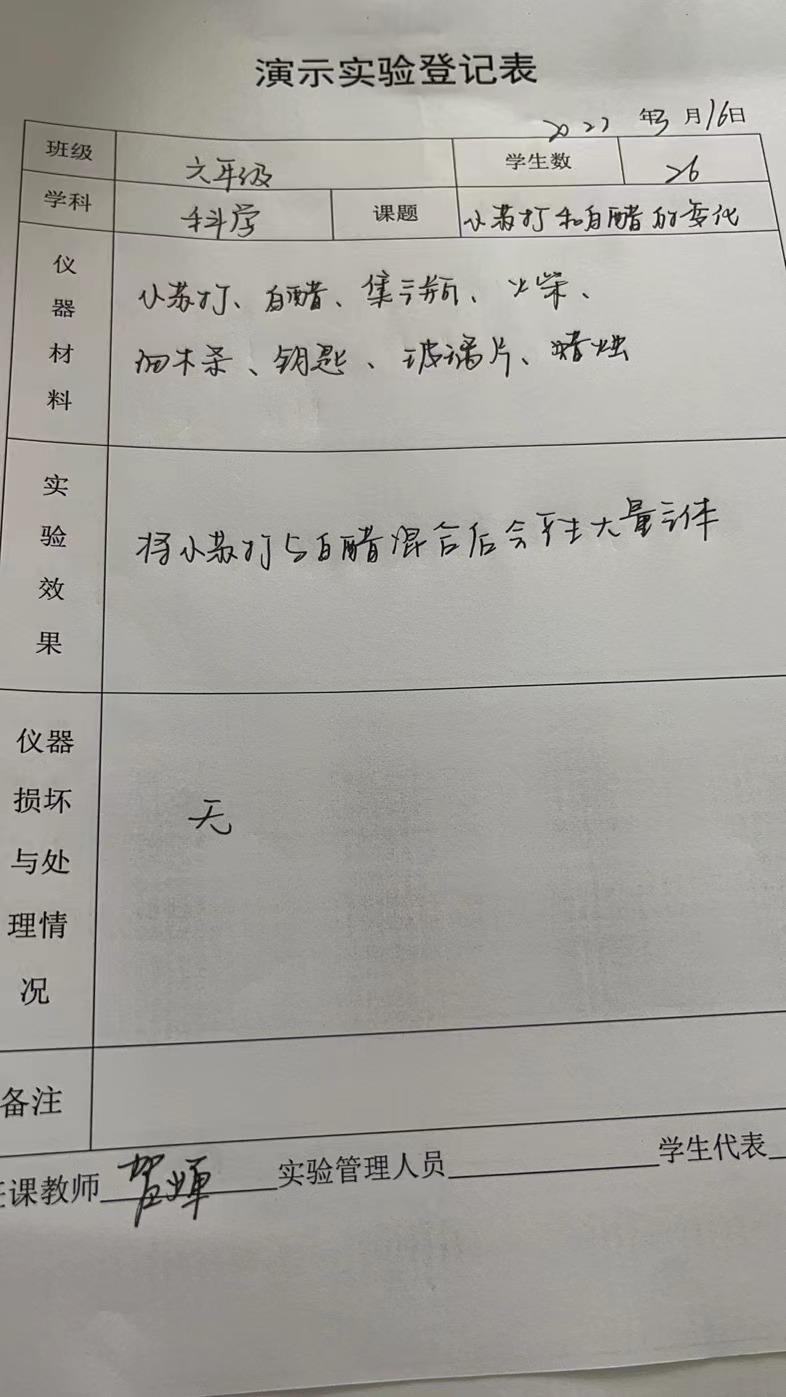 演示实验登记表
年3月16日
班级 六年级 学生数 26
学科 科学 课题 小苏打和白醋的变化
仪器材料 小苏打、白醋、集气瓶、火柴、
细木条、钥匙、玻璃片、蜡烛
实验效果 将小苏打与白醋混合后会产生大量气体
仪器损坏与处理情况 无
备注
任课教师 实验管理人员 学生代表